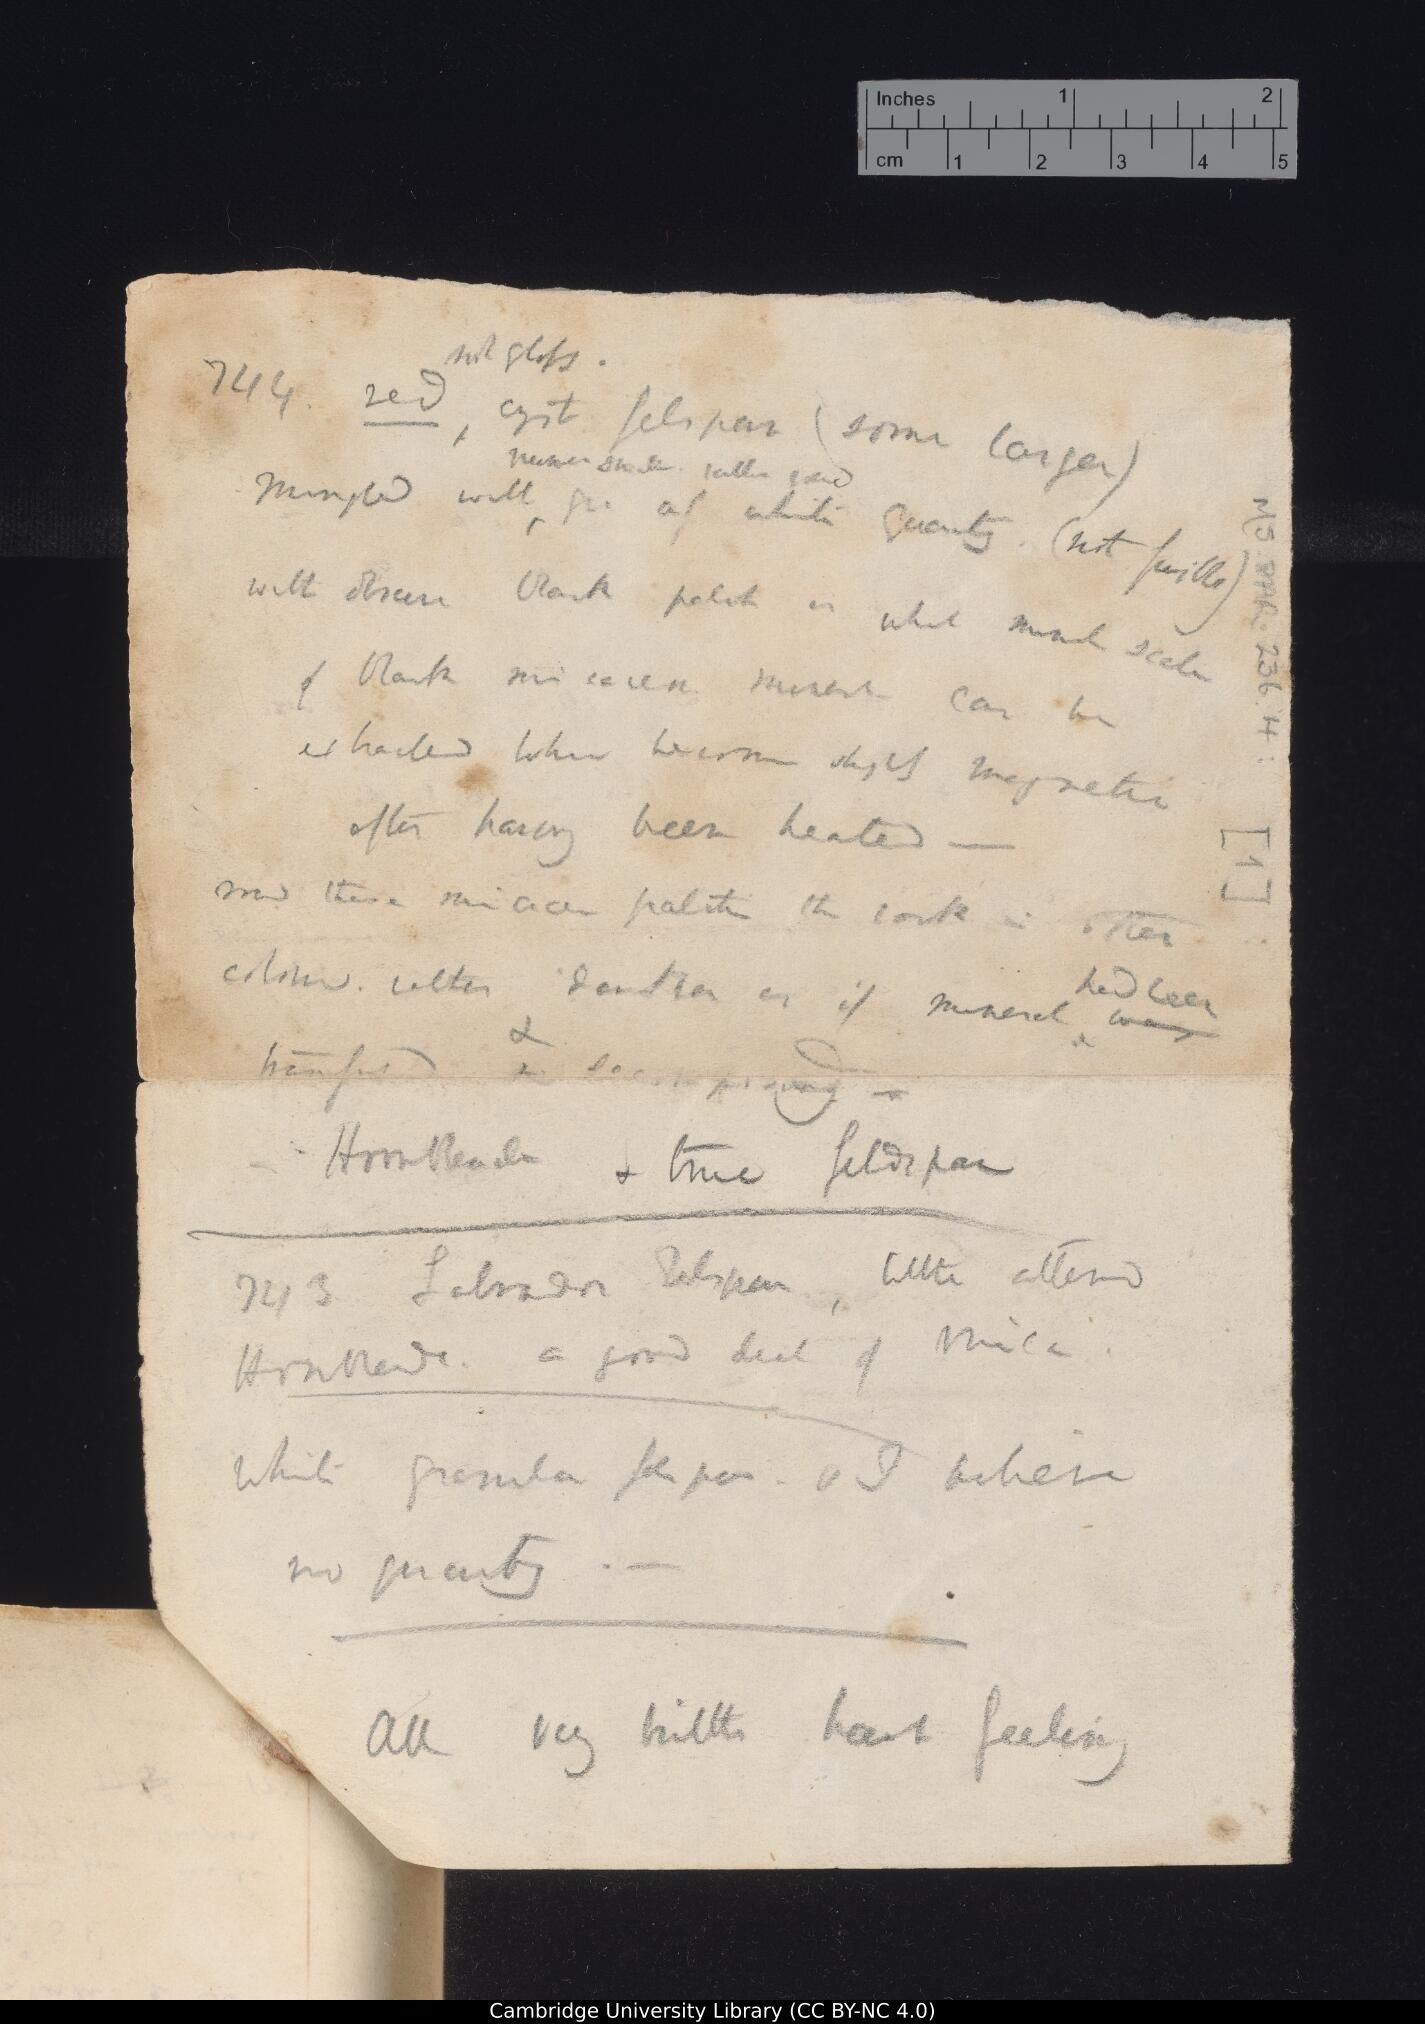 Inches 1 2
cm 1 2 3 4 5
not gloss.
744. red, cryst felspar (some larger)
rather
Mingled with, grs of white quartz. (not fusible)
with obscure black patch in which minute scale
of black micaceous mineral can be
extracted which become slight magnetic
after having been heated —
round these micaceous patches the rock is often
colored. rather darker as if mineral had been was
transfused & in decomposing
Hornblende & true feldspar
743 Labrador Felspar, little altered
Hornblende. a good deal of mica.
White granular felspar. & I believe
no quartz. —
All very brittle harsh feeling
MS. DAR. 236.4:
[1]
Cambridge University Library (CC BY-NC 4.0)